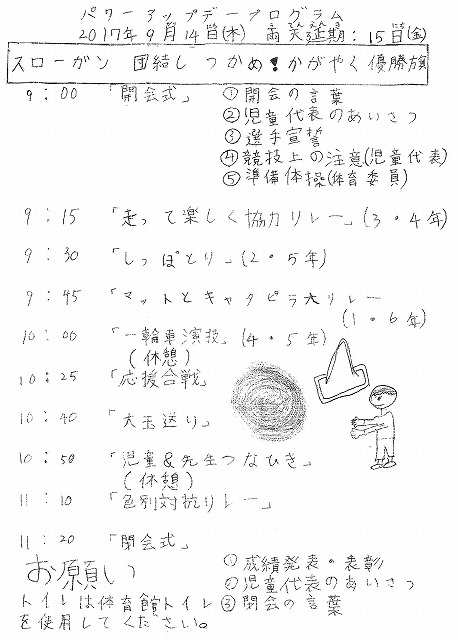 パワーアップデープログラム
2017年9月14日(木) 雨天延期：15日(金)
スローガン 団結し つかめ！かがやく優勝旗
9：00 「開会式」 ①開会の言葉
②児童代表のあいさつ
③選手宣誓
④競技上の注意(児童代表)
⑤準備体操(体育委員)
9：15 「走って楽しく協力リレー」(3・4年)
9：30 「しっぽとり」(2・5年)
9：45 「マットとキャタピラ大リレー
(1・6年)
10：00 「一輪車演技」(4・5年)
(休憩)
10：25 「応援合戦」
10：40 「大玉送り」
10：50 「児童&先生つなひき」
(休憩)
11：10 「色別対抗リレー」
11：20 「閉会式」
①成績発表・表彰
②児童代表のあいさつ
③閉会の言葉
お願い
トイレは体育館トイレ
を使用してください。